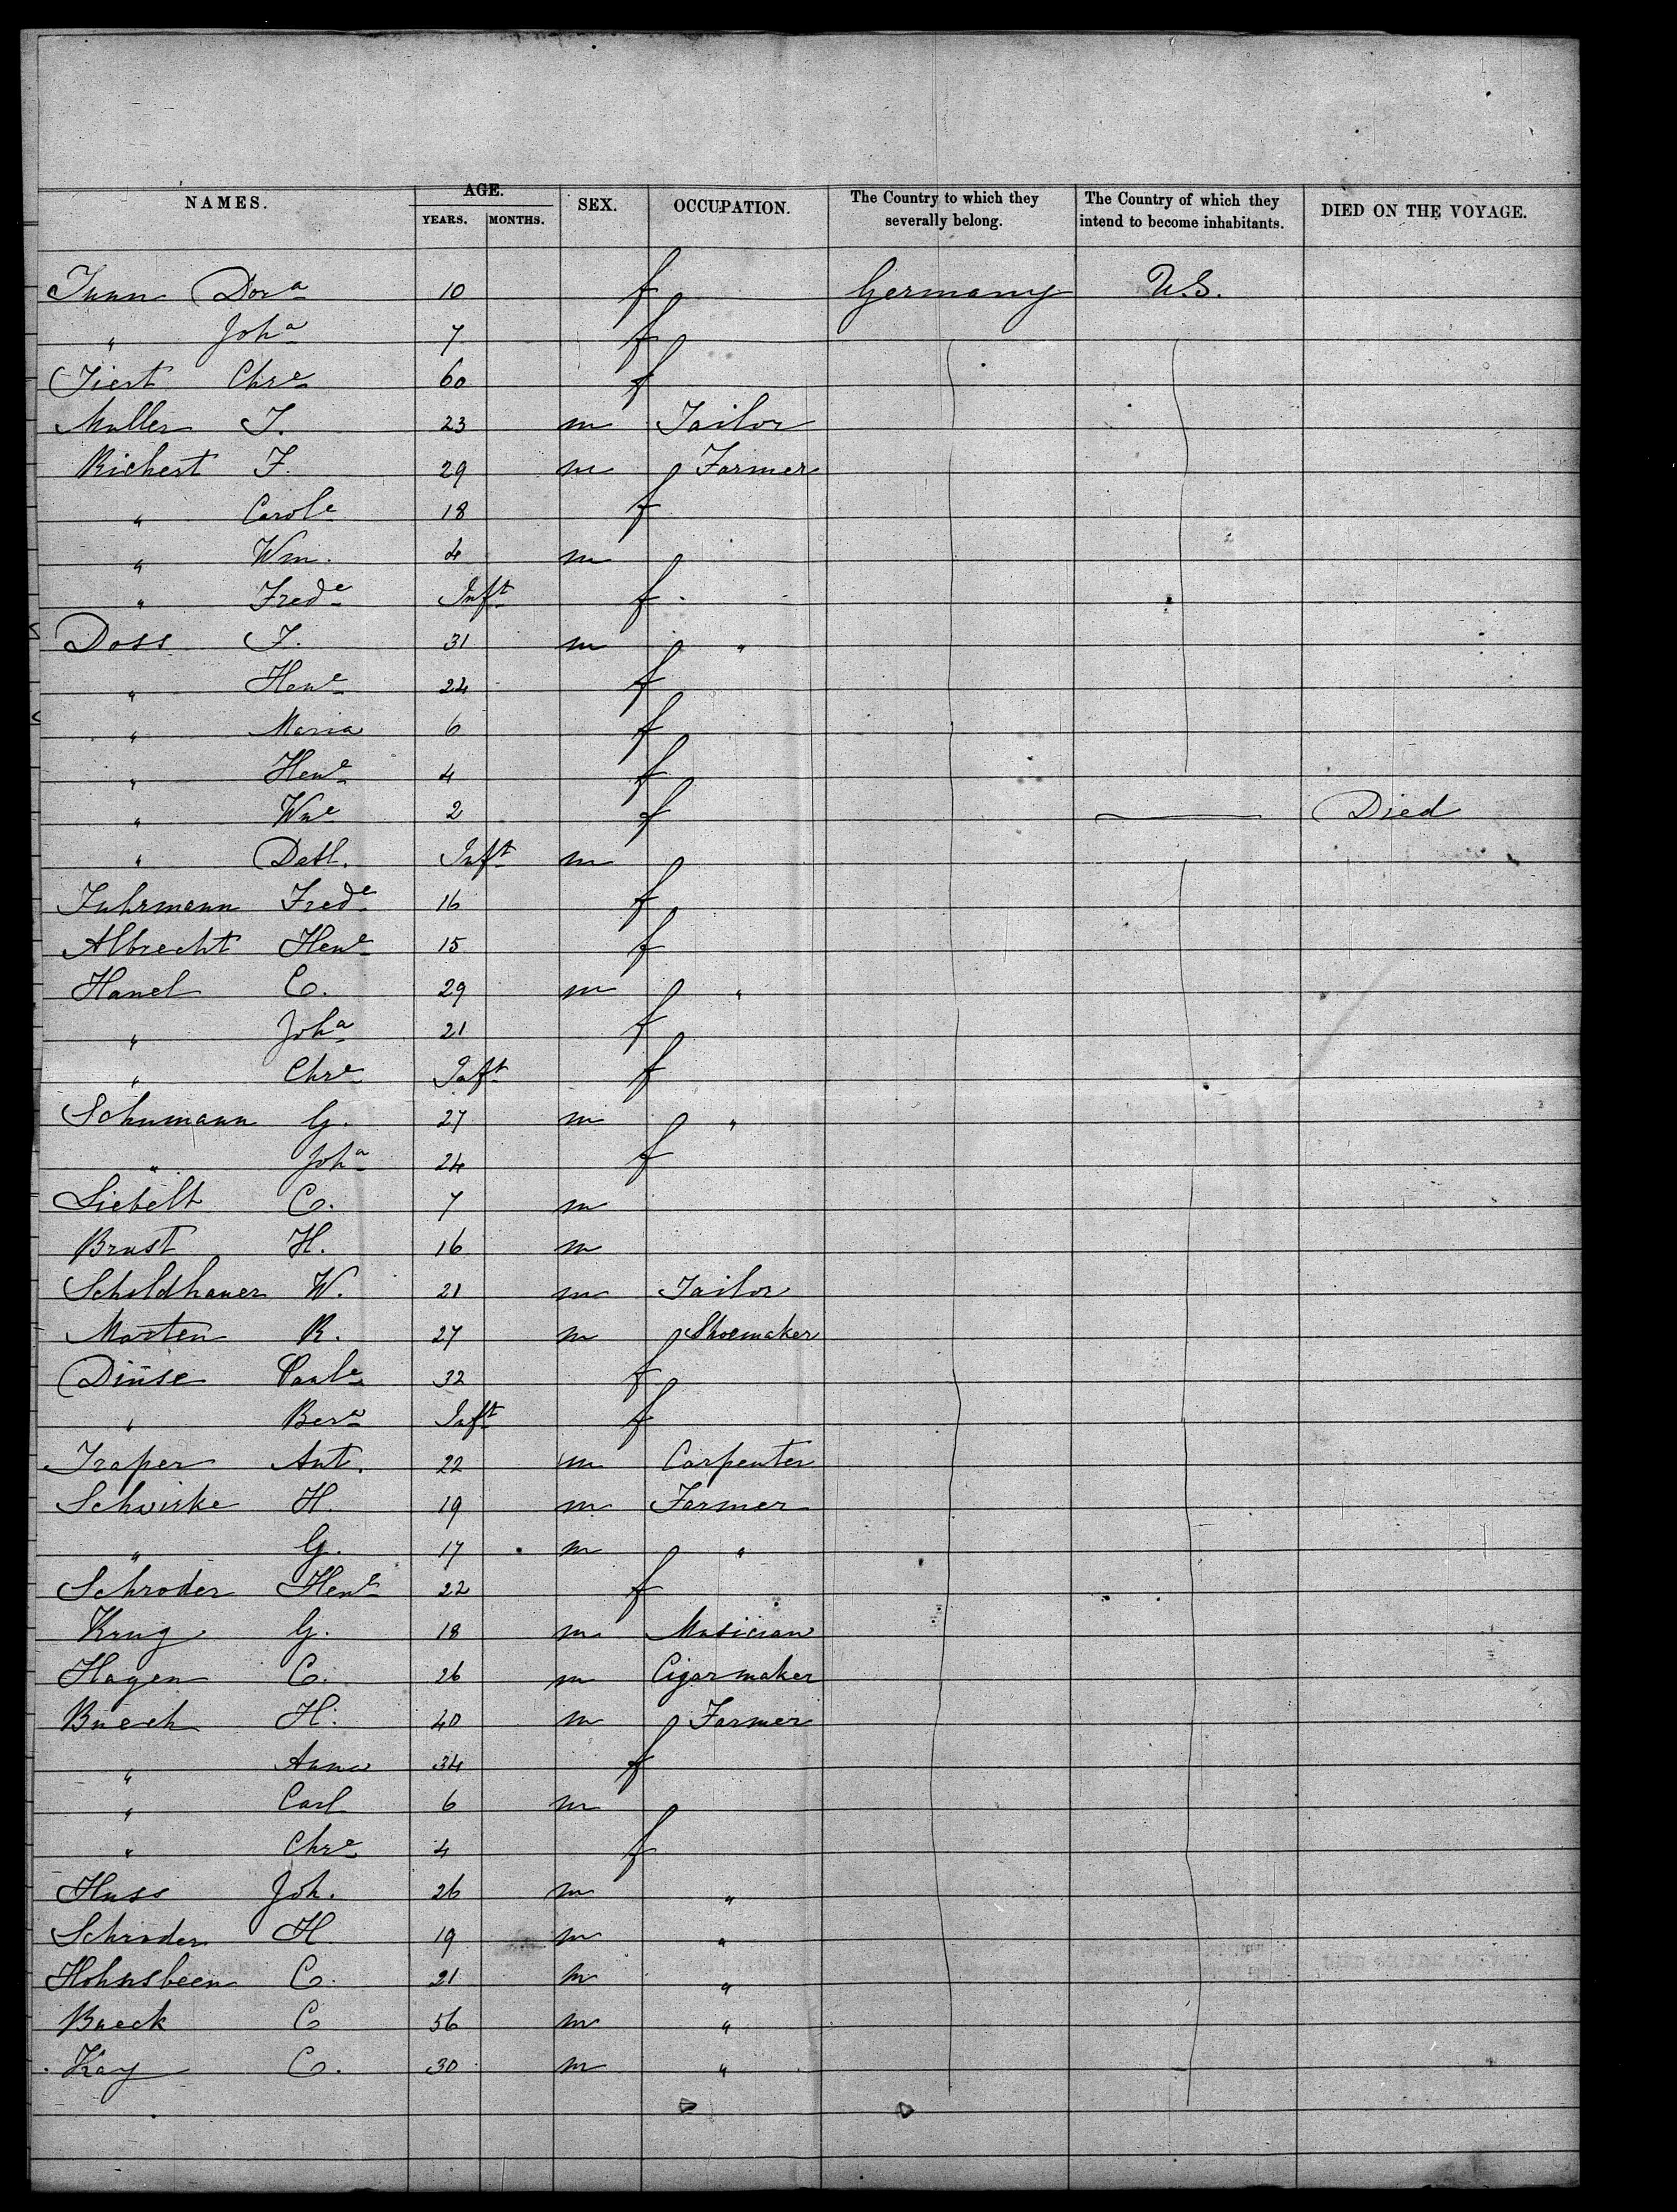 NAMES. AGE. SEX. OCCUPATION. The Country to which they severally belong. The Country of which they intend to become inhabitants. DIED ON THE VOYAGE.
YEARS. MONTHS.
Dora 10 f Germany U.S.
" Joha 7 f
Tiest Chre 60 f
Muller F. 23 m Tailor
Richert F. 29 m Farmer
" Carole 18 f
" Wm. 4 m
" Frede Inft f
Doss F. 31 m "
" Hene 24 f
" Maria 6 f
" Hene 4 f
" Wne 2 f Died
" Detl. Inft m
Fuhrmann Frede 16 f
Albrecht Hene 15 f
Hanel C. 29 m "
" Joha 21 f
" Chre Inft f
Schumann G. 27 m "
" Joha 24 f
Liebelt C. 7 m
Brust H. 16 m
Schildhauer W. 21 m Tailor
Marten R. 27 m Shoemaker
Dinse Paule 32 f
" Bere Inft f
Traper Ant. 22 m Carpenter
Schwirke H. 19 m Farmer
" G. 17 m "
Schroder Hene 22 f
Krug G. 18 m Musician
Hagen C. 26 m Cigarmaker
Bueck H. 40 m Farmer
" Anna 34 f
" Carl 6 m
" Chre 4 f
Huss Joh. 26 m "
Schroder H 19 m "
Hohnsbeen C. 21 m "
Bueck C 56 m "
Kay C. 30 m "